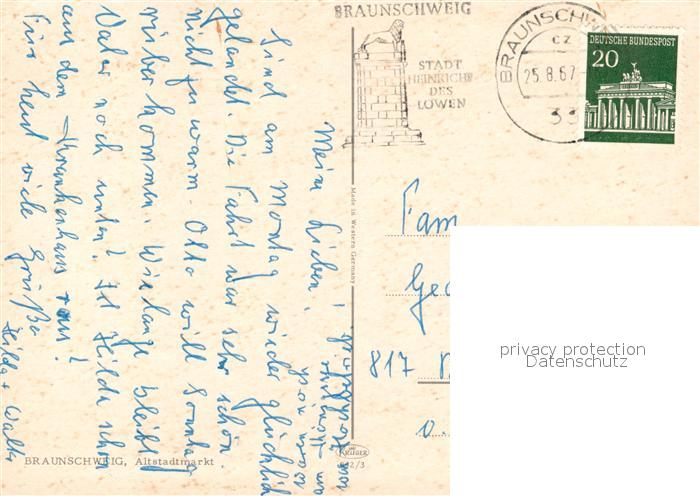 BRAUNSCHWEIG
STADT
HEINRICHS
DES
LÖWEN
BRAUNSCHWEIG
cz
25.8.67
33
DEUTSCHE BUNDESPOST
20
Mein Lieben!
Sind am Montag wieder glücklich
gelandet. Die Fahrt war sehr schön.
nicht zu warm. Otto will Sonntag
rüber kommen. Wie lange bleibt
Vater noch unten? Ist Hilda schon
aus dem Krankenhaus raus?
Für heut viele Grüße
Hilda + Walter
Made in Western Germany
Fam
Geo
817
BRAUNSCHWEIG, Altstadtmarkt
KRÜGER
privacy protection
Datenschutz